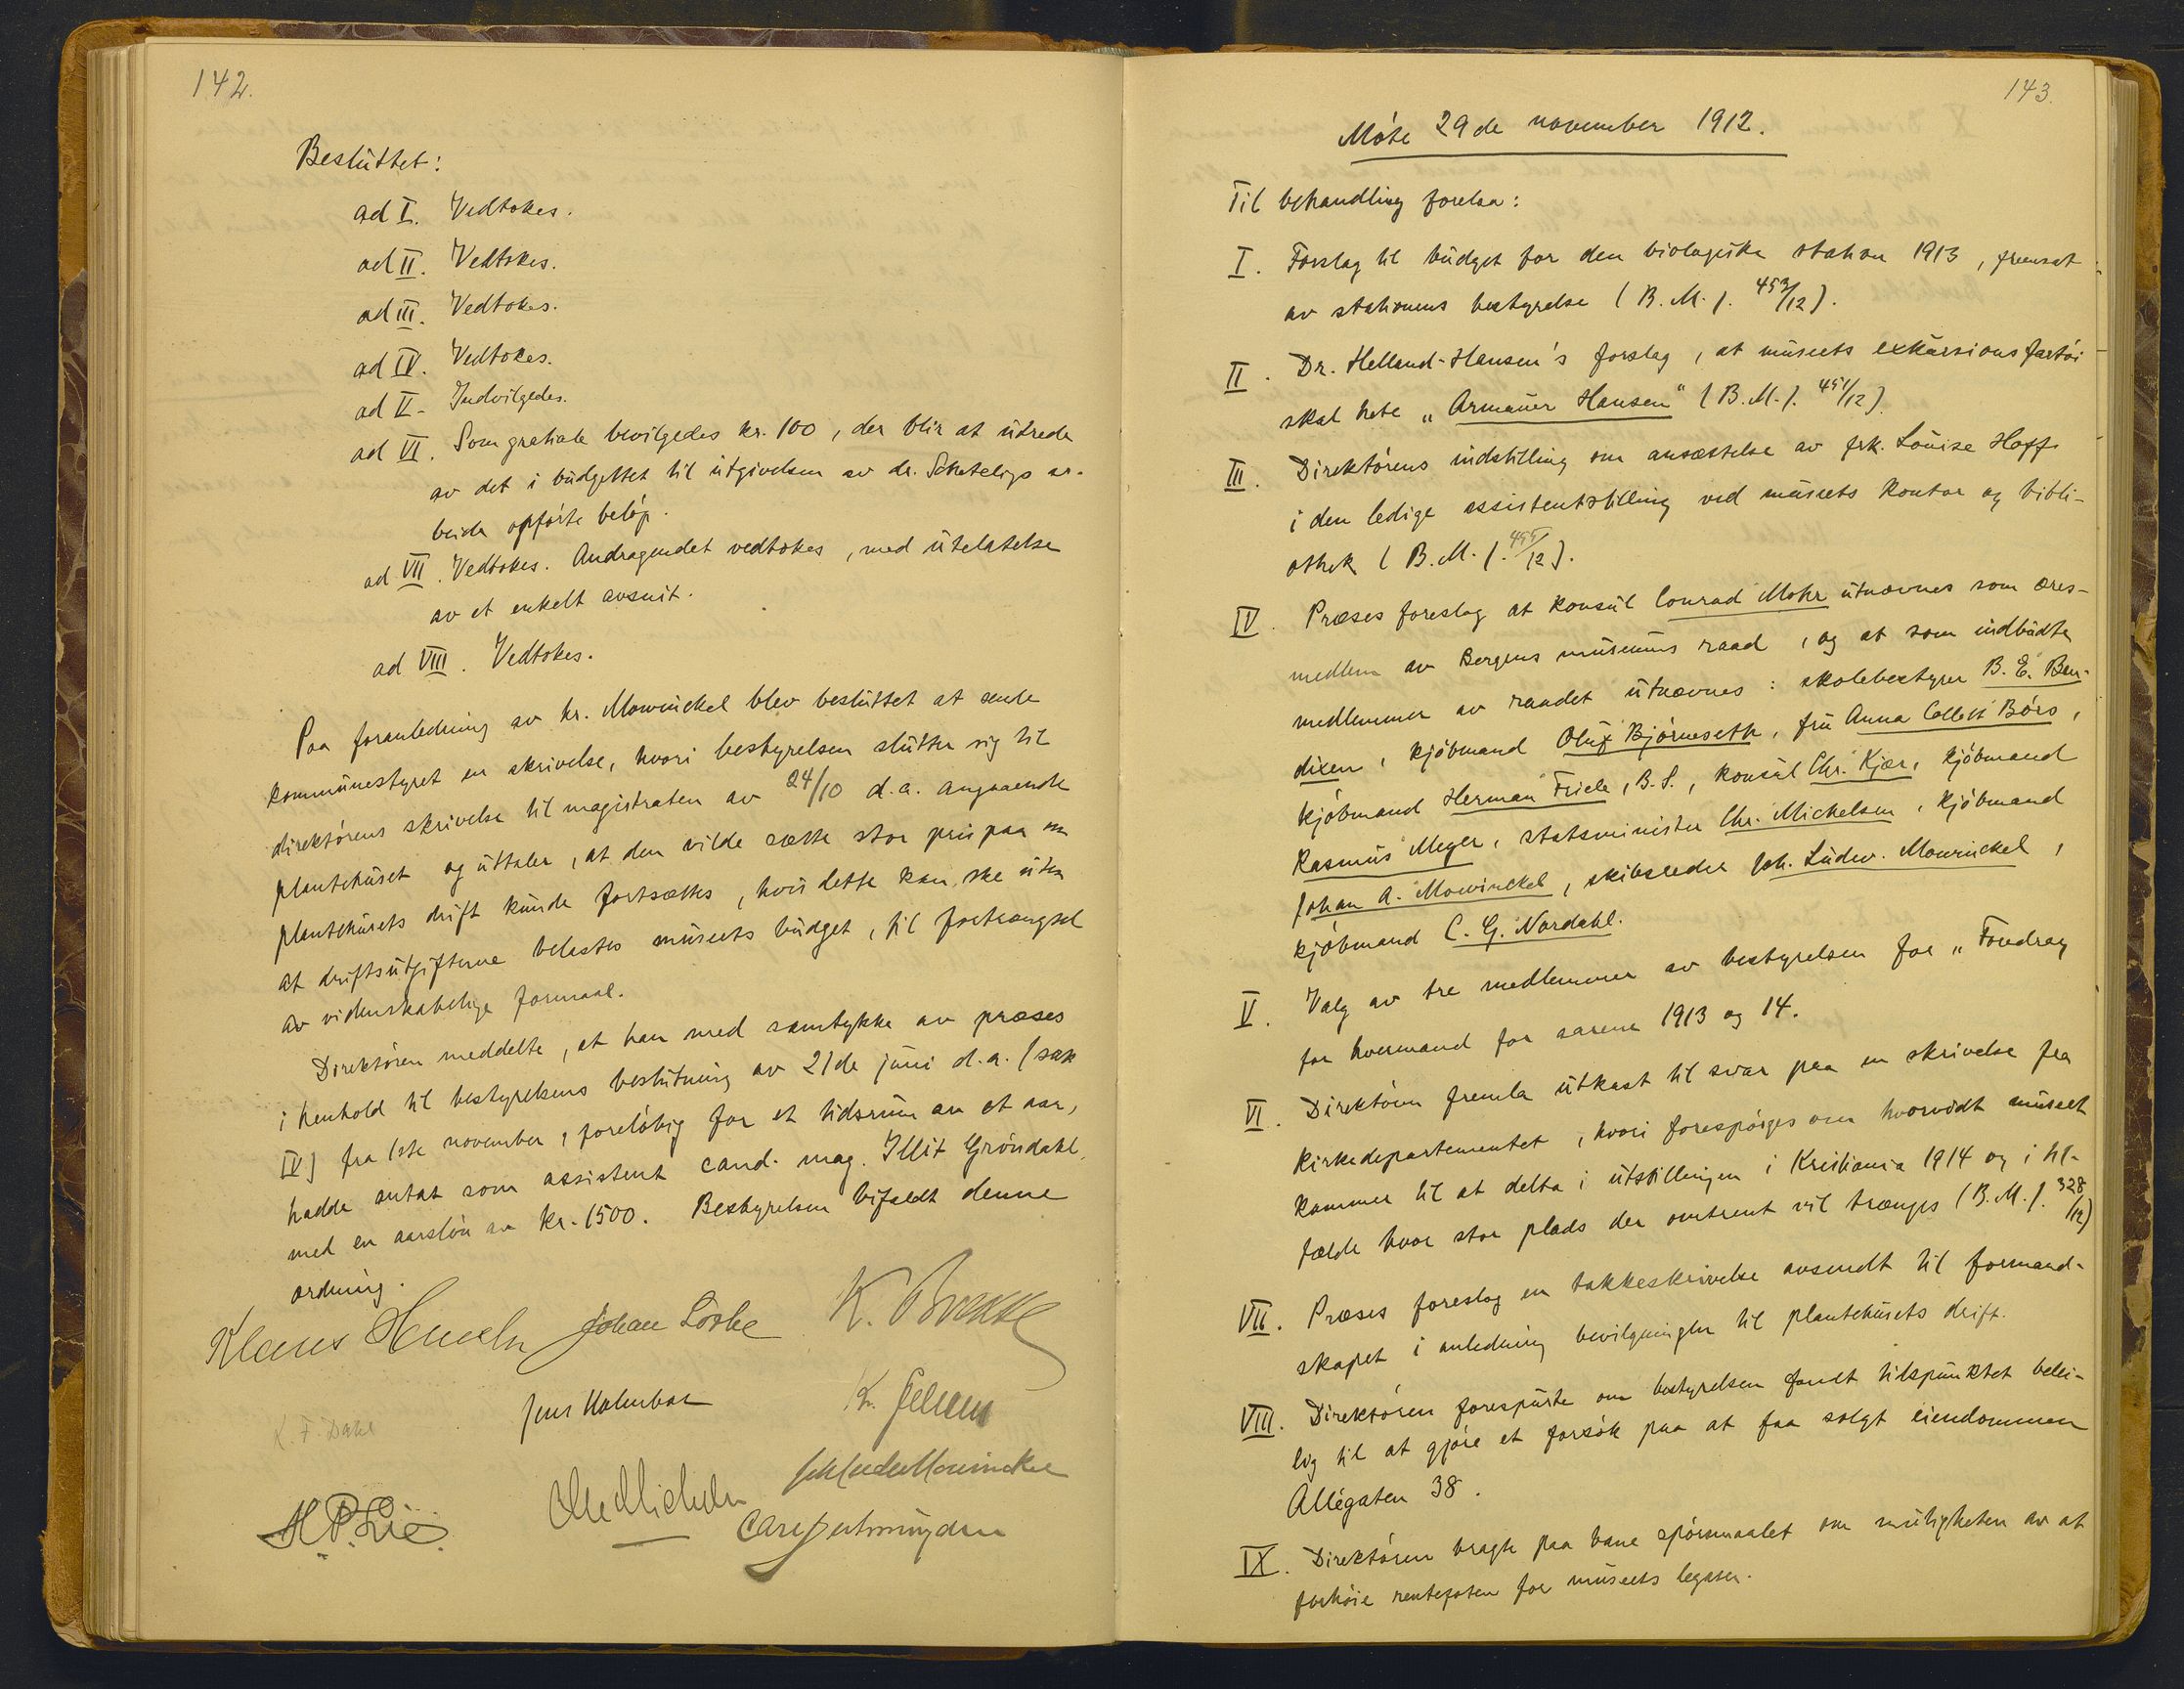 142.
Besluttet:
ad I. Vedtokes.
ad II. Vedtokes.
ad III. Vedtokes.
ad IV. Vedtokes.
ad V. Indvilgedes.
ad VI. Som gratiale bevilgedes kr. 100, der blir at utrede
av det i budgettet til utgivelsen av dr. Scheteligs ar-
beide opførte beløp.
ad VII. Vedtokes. Andragendet vedtokes, med utelatelse
av et enkelt avsnit.
ad VIII. Vedtokes.
Paa foranledning av hr. Mowinckel blev besluttet at sende
kommunestyret en skrivelse, hvori bestyrelsen slutter sig til
direktørens skrivelse til magistraten av 24/10 d.a. angaaende
plantehuset og uttaler, at den vilde sætte stor pris paa om
plantehusets drift kunde fortsættes, hvis dette kan ske uten
at driftsutgifterne belastes museets budget, til fortrængsel
av videnskabelige formaal.
Direktøren meddelte, at han med samtykke av præses
i henhold til bestyrelsens beslutning av 21de juni d.a. (sak
IV) fra 1ste november, foreløbig for et tidsrum av et aar,
hadde antat som assistent cand. mag. Illit Grøndahl,
med en aarsløn av kr. 1500. Bestyrelsen bifaldt denne
ordning.
Klaus Johan Lothe K.
K. F. Dahl Jens Holmboe
H. P. Lie. Joh Ludw Mowinckel
143.
Møte 29de november 1912.
Til behandling forelaa:
I. Forslag til budget for den biologiske station 1913, fremsat
av stationens bestyrelse (B. M. J. 453/12).
II. Dr. Helland-Hansen's forslag, at museets exkursionsfartøi
skal hete „Armauer Hansen" (B. M. J. 451/12).
III. Direktørens indstilling om ansættelse av frk. Louise Hoff
i den ledige assistentstilling ved museets kontor og bibli-
othek (B. M. J. 455/12).
IV. Præses foreslog at konsul Conrad Mohr utnævnes som æres-
medlem av Bergens museums raad, og at som indbudte
medlemmer av raadet utnævnes: skolebestyrer B. E. Ben-
dixen, kjøbmand Oluf Bjørneseth, fru Anna Collett Børs,
kjøbmand Herman Friele, B. S., konsul Chr. Kjær, kjøbmand
Rasmus Meyer, statsminister Chr. Michelsen, kjøbmand
Johan A. Mowinckel, skibsreder Joh. Ludw. Mowinckel,
kjøbmand C. G. Nordahl.
V. Valg av tre medlemmer av bestyrelsen for „Foredrag
for hvermand for aarene 1913 og 14.
VI. Direktøren fremla utkast til svar paa en skrivelse fra
kirkedepartementet, hvori forespørges om hvorvidt museet
kommer til at delta i utstillingen i Kristiania 1914 og i til-
fælde hvor stor plads der omtrent vil trænges (B. M. J. 328/12)
VII. Præses foreslog en takkeskrivelse avsendt til formand-
skapet i anledning bevilgningen til plantehusets drift.
VIII. Direktøren forespurte om bestyrelsen fandt tidspunktet belei-
lig til at gjøre et forsøk paa at faa solgt eiendommen
Allégaten 38.
IX. Direktøren bragte paa bane spørsmaalet om muligheten av at
forhøie rentefoten for museets legater.